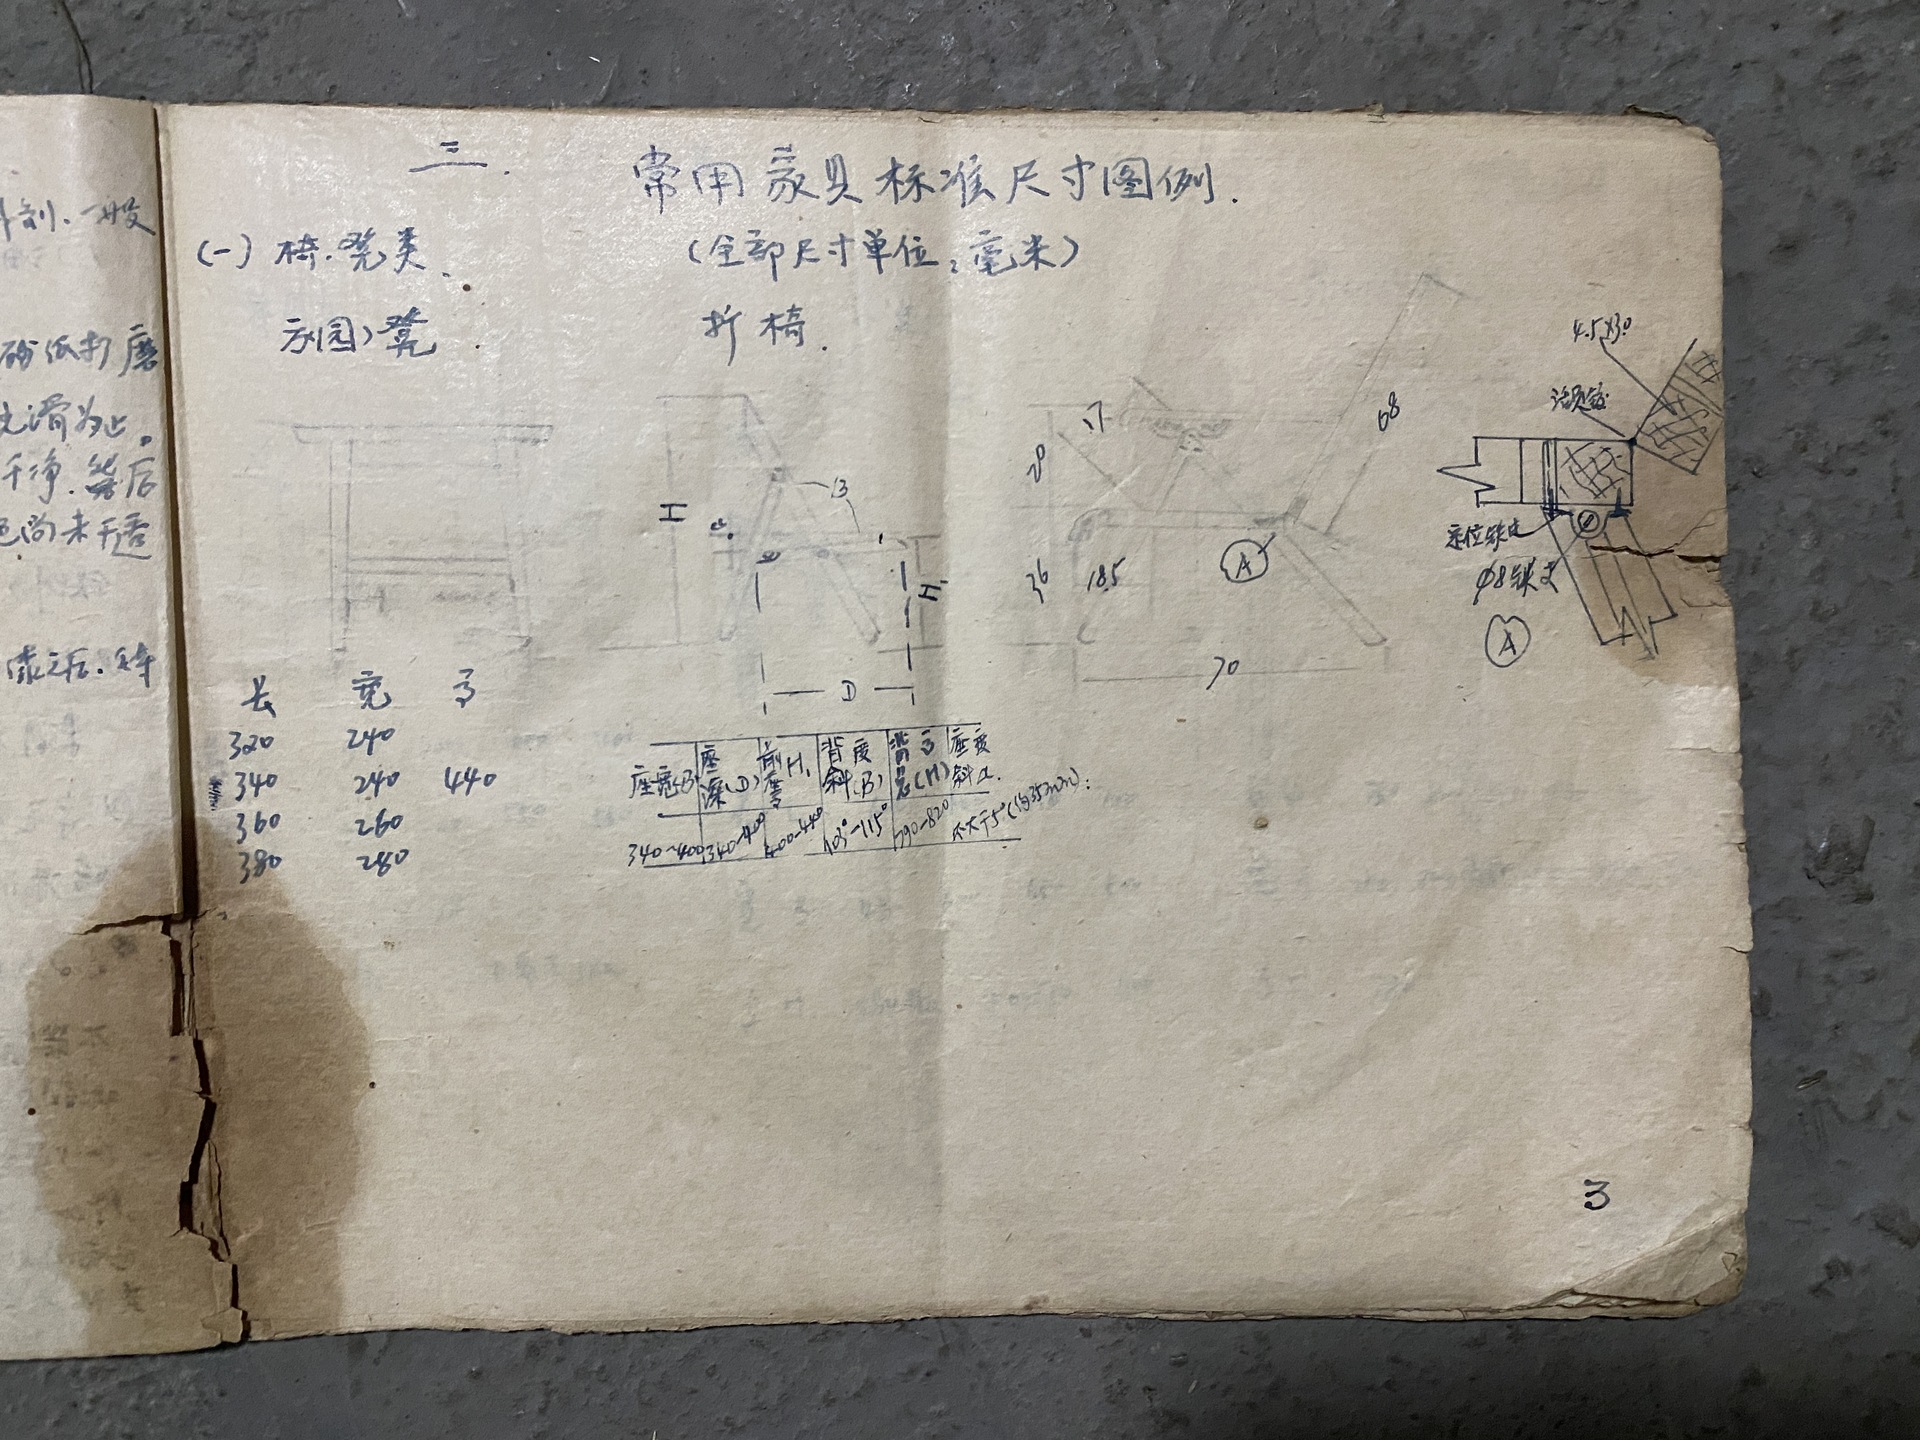 二.
常用家具标准尺寸图例.
(一) 椅.凳类.
(全部尺寸单位:毫米)
方(园)凳.
折椅.
长 宽 高
320 240
340 240 440
360 260
380 280
H
B
H₁
D
座宽(B) 座深(D) 前座H₁ 背斜度(B) 背总高(H) 座斜度α
340~400 340~400 400~440 105°~115° 790~820 不大于5°(约35mm):
17
20
36
18.5
68
70
A
4.5X30
活页铰
定位铁
Φ8铁
A
3
剂.一般
砂纸打磨
光滑为止。
干净.然后
色尚未干透